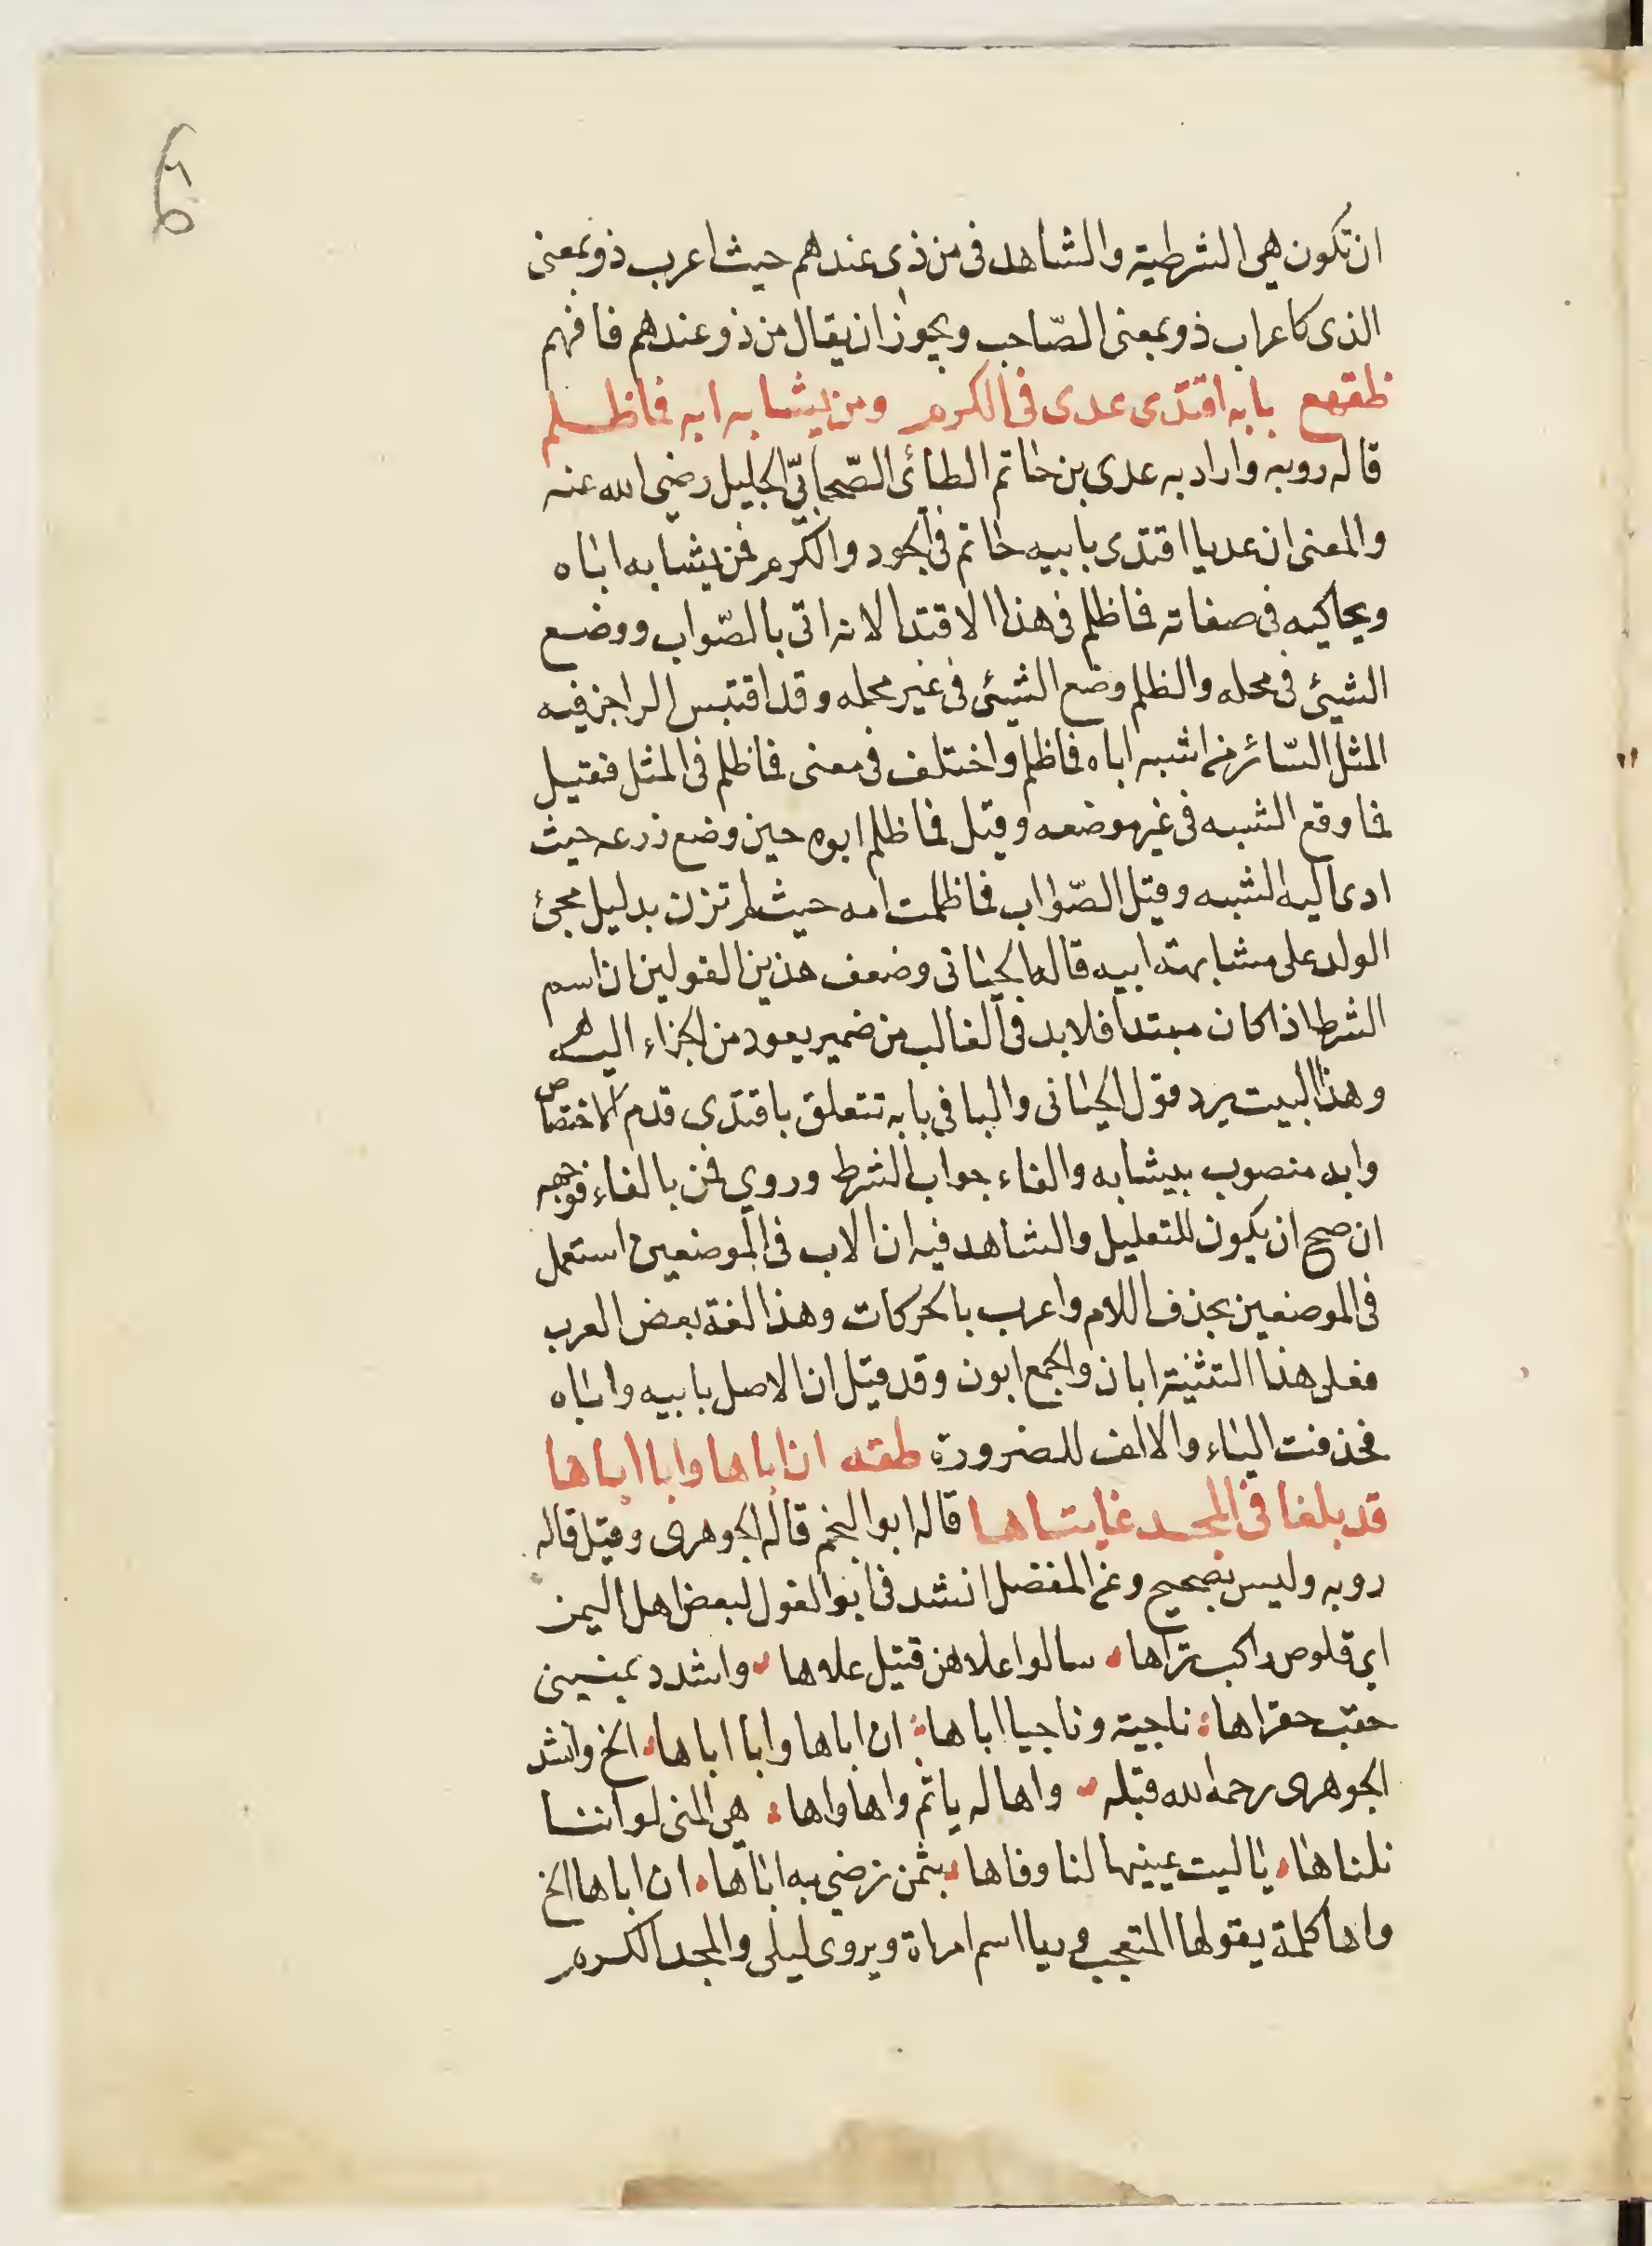 ان تكون هي الشرطية والشاهد في من ذي عندهم حيث اعرب ذو بمعنى
الذي كاعراب ذو بمعنى الصّاحب ويجوز ان يقال من ذو عندهم فافهم
ظقهع بابه اقتدى عدى في الكرم ومن يشابه ابه فما ظلم
قاله روبه واراد به عدى بن حاتم الطائى الصّحابيّ الجليل رضي الله عنه
والمعنى ان عديا اقتدى بابيه حاتم في الجود والكرم فمن يشابه اباه
ويحاكيه في صفاته فما ظلم في هذا الاقتدا لانه اتى بالصّواب ووضع
الشيئ في محله والظلم وضع الشيئ في غير محله وقد اقتبس الراجز فيه
المثل السّائر من اشبه اباه فما ظلم واختلف في معنى فما ظلم في المثل فقيل
فما وقع الشبه في غير موضعه وقيل فما ظلم ابوه حين وضع زرعه حيث
ادى اليه الشبه وقيل الصّواب فما ظلمت امه حيث لم تزن بدليل مجئ
الولد على مشابهة ابيه قاله اللحياني وضعف هذين القولين ان اسم
الشرط اذا كان مبتدا فلا بد في الغالب من ضمير يعود من الجزاء اليه
وهذا البيت يرد قول اللحياني والبا في بابه تتعلق باقتدى قدم للاختصاص
وابه منصوب بيشابه والفاء جواب الشرط وروي فمن بالفاء فوجهه
ان صح ان يكون للتعليل والشاهد فيه ان الاب في الموضعين استعمل
في الموضعين بحذف اللام واعرب بالحركات وهذا لغة بعض العرب
فعلى هذا التثنية ابان والجمع ابون وقد قيل ان الاصل بابيه واباه
فحذفت الياء والالف للضرورة طقه ان اباها وابا اباها
قد بلغا في المجد غايتاها قاله ابو النجم قاله الجوهرى وقيل قاله
روبه وليس بصحيح وعن المفضل انشد في ابو الغول لبعض اهل اليمن
اي قلوص راكب تراها، سالوا علاهن قتيل علاها، واشدد بمثيني
حقب حقواها، ناجية وناجيا اباها، ان اباها وابا اباها، الخ وانشد
الجوهرى رحمه الله قبله، واها له ياثم واها واها، هي المنى لو اننا
نلناها، يا ليت عينيها لنا وفاها، بثمن نرضي به اباها، ان اباها الخ
واها كلمة يقولها المتعجب وريا اسم امراة ويروى ليلى والمجد الكرم